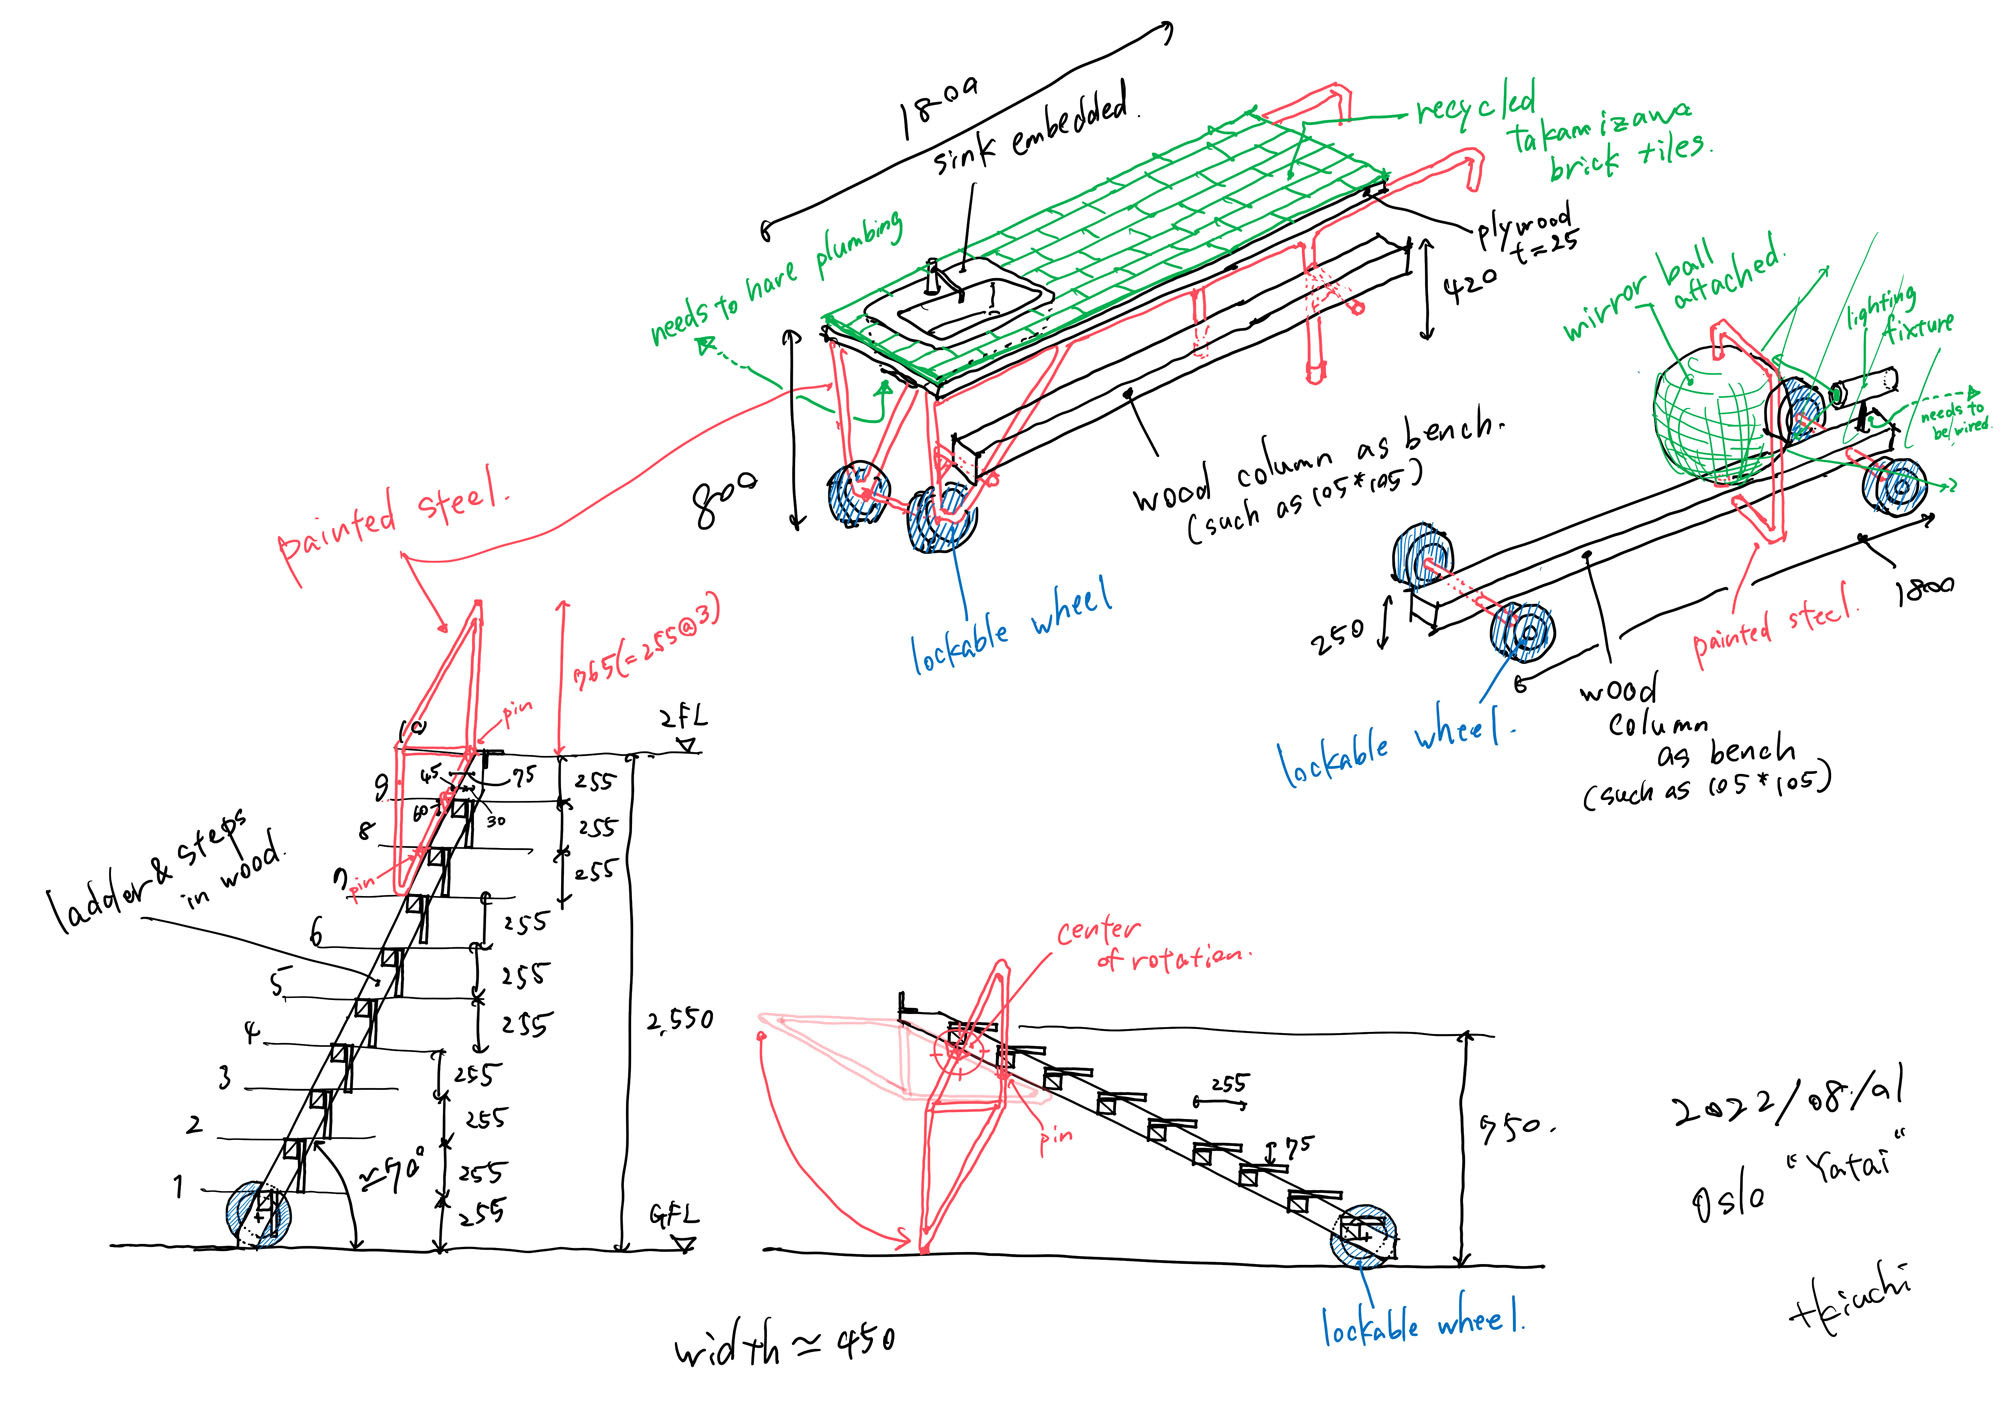 1800
sink embedded.
recycled
takamizawa
brick tiles.
needs to have plumbing
plywood
t=25
420
800
wood column as bench.
(such as 105*105)
lockable wheel
painted steel.
mirror ball
attached.
lighting
fixture
needs to
be wired.
250
1800
painted steel.
lockable wheel.
wood
column
as bench
(such as 105*105)
765(=255@3)
pin
2FL
10
9
8
7
6
5
4
3
2
1
45
75
60
30
pin
255
255
255
255
255
255
255
255
255
255
2,550
ladder & steps
in wood.
≃70°
GFL
center
of rotation.
pin
255
75
750.
lockable wheel.
width ≃ 450
2022/08/01
Oslo "Yatai"